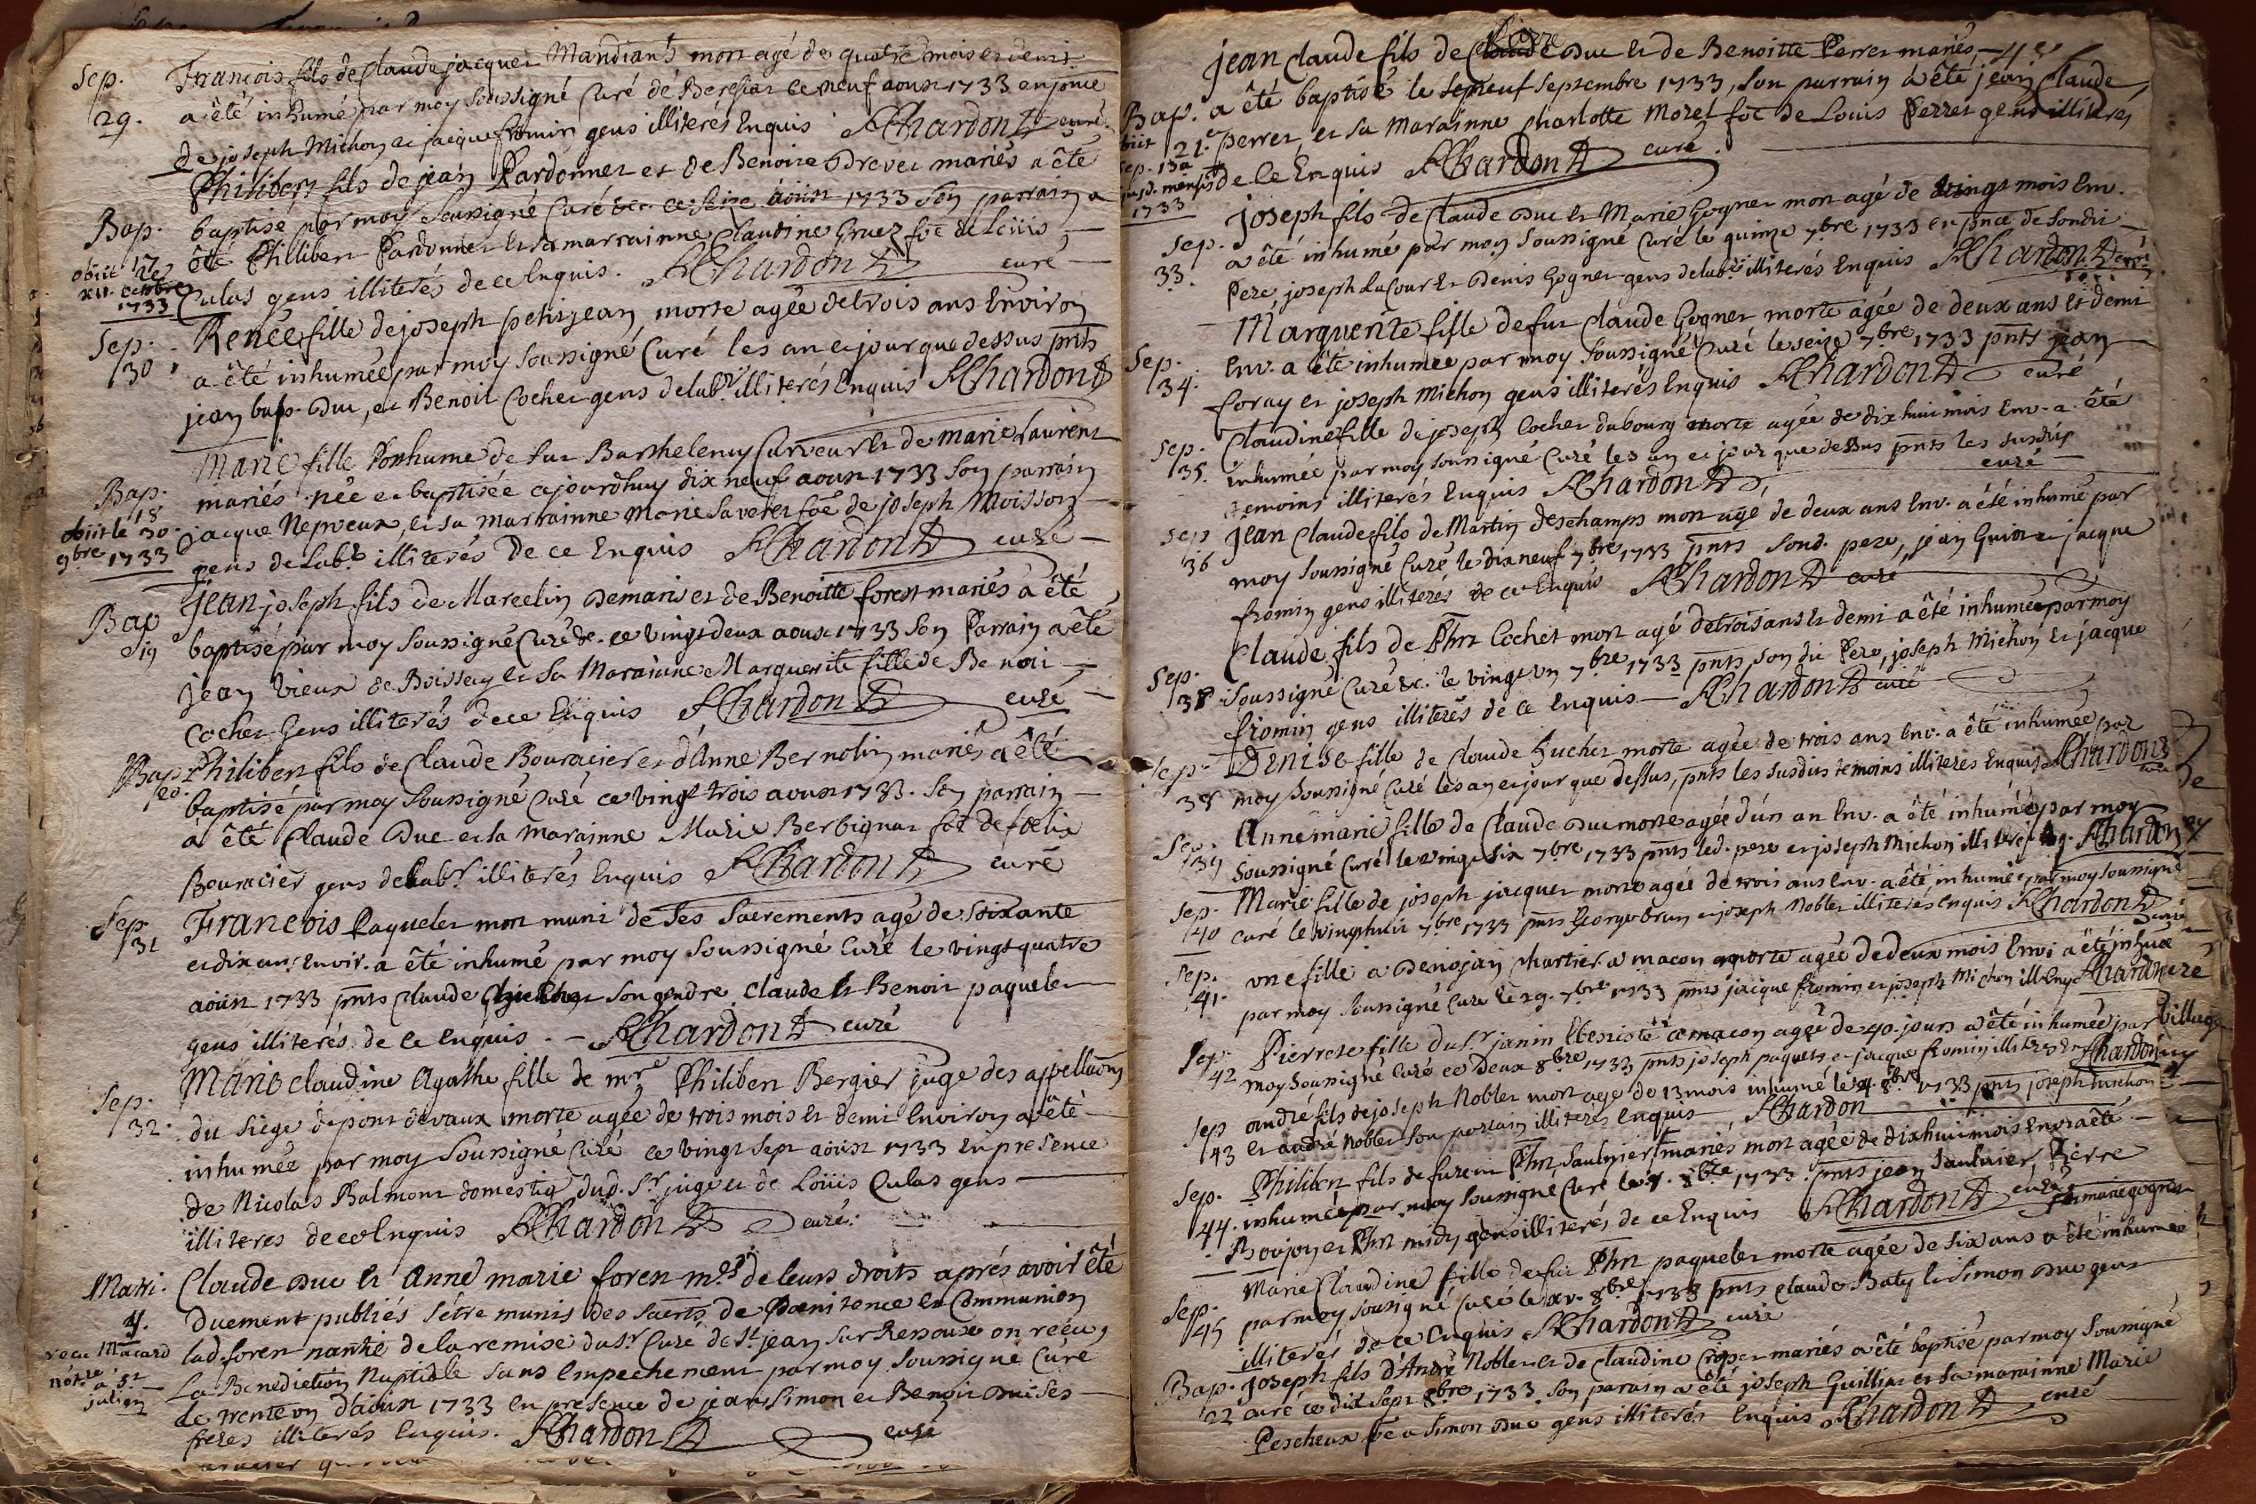 Sep. 29. François fils de Claude jacquet Mandiant mort agé de quatre mois et demi
a été inhumé par moy soussigné Curé de ce neuf aoust 1733 en pnce
de joseph Michon et jacque fromin gens illiterés Enquis Chardon curé
Philibert fils de jean Pardonnet et de Benoite Drevet mariés a été
Bap. 17 baptisé par moy soussigné Curé &c. ce seize aoust 1733 son parrain a
été Philibert Pardonnet et sa marrainne Claudine Gruez fae de Loüis
obiit 12e
xii. octobre
1733
Culas gens illiterés de ce Enquis. Chardon curé
Sep. 30. Renée fille de joseph petitjean morte agée de trois ans Environ
a été inhumée par moy soussigné Curé les an et jour que dessus pnts
jean bap. Duc, et Benoit Cochet gens de labr. illiterés Enquis Chardon
Marie fille Posthume de fut Barthelemy Curveur et de Marie Laurent
Bap. 18 mariés née et baptisée ajourdhuy dix neuf aoust 1733 son parrain
obiit le 30
9bre 1733
jacque Nepveux, et sa marrainne Marie Laveret fae de joseph Moisson
gens de labr. illiterés de ce Enquis Chardon curé
Bap 19 Jean joseph fils de Marcelin Demaris et de Benoitte forest mariés a été
baptisé par moy soussigné Curé &c. ce vingt deux aoust 1733 son Parrain a été
jean Vieux de Boissey et sa Marainne Marguerite fille de Benoit
Cochet Gens illiterés de ce Enquis Chardon curé
Bap. 20. Philibert fils de Claude Bouracier et d'Anne Bernolin mariés a été
baptisé par moy soussigné Curé ce vingt trois aoust 1733. son parrain
a été Claude Duc et sa marainne Marie Berbignat fae de felix
Bouracier gens de labr. illiterés Enquis Chardon curé
Sep. 31 François Paquelet mort muni de ses Sacrements agé de soixante
et dix ans Envir. a été inhumé par moy soussigné Curé le vingt quatre
aoust 1733 pnts Claude son gendre Claude et Benoit paquelet
gens illiterés de ce Enquis. Chardon curé
Sep. 32. Marie Claudine Agathe fille de mre Philibert Bergier juge des appellaons
du Siege de pont devaux morte agée de trois mois et demi Environ a été
inhumée par moy soussigné Curé ce vingt sept aoust 1733 En presence
de Nicolas Balmont domestiq dud. Sr. juge et de Loüis Culas gens
illiteres de ce Enquis Chardon curé.
Mari. 4. Claude Duc et Anne marie foret mes. de leurs droits aprés avoir été
duement publiés s'être munis des sacrts. de Pœnitence et Communion
recu Macard
notre
a St
julien
lad. foret nantie de la remise du Sr. Curé de St. jean sur Ressouse on reçu
La Benediction Nuptiale sans Empechement par moy soussigné Curé
le trente un d'aoust 1733 en presence de jean Simon et Benoit
freres illiterés Enquis. Chardon curé
Pierre
Jean Claude fils de Claude Duc et de Benoitte Perret mariés
Bap. 21. a été baptisé le neuf septembre 1733, son parrain a été jean Claude
obiit
Sep. 13a
jusd. mensis
1733
perret, et sa Marainne Charlotte Morel fae de Louis Perret gens illiterés
de ce Enquis Chardon curé.
Sep. 33. Joseph fils de Claude Duc et Marie Gognet mort agé de vingt mois Env.
a été inhumé par moy soussigné Curé le quinze 7bre 1733 en pnce de sondit
Pere, joseph LaCour et Denis Gognet gens de labr. illiterés Enquis Chardon curé
Sep. 34. Marguerite fille de fut Claude Gognet morte agée de deux ans et demi
Env. a été inhumée par moy soussigné Curé le seize 7bre 1733 pnts jean
foray et joseph Michon gens illiterés Enquis Chardon curé
Sep. 35. Claudine fille de joseph Cochet du bourg morte agée de dix huit mois Env. a été
inhumée par moy soussigné Curé les an et jour que dessus pnts les susdits
temoins illiterés Enquis Chardon curé
Sep 36 Jean Claude fils de Martin Deschamps mort agé de deux ans Env. a été inhumé par
moy soussigné Curé le dix neuf 7bre 1733 pnts sond. pere, jean Guion et jacque
fromin gens illiterés de ce Enquis Chardon curé
Sep. 37. Claude fils de Phrt Cochet mort agé de trois ans et demi a été inhumé par moy
soussigné Curé &c. le vingt un 7bre 1733 pnts son dit Pere, joseph Michon et jacque
fromin gens illiterés de ce Enquis Chardon curé
Sep. 38 Denise fille de Claude morte agée de trois ans Env. a été inhumée par
moy soussigné Curé les an et jour que dessus, pnts les susdits temoins illiteres Enquis Chardon curé
Sep. 39 Anne marie fille de Claude Duc morte agée d'un an Env. a été inhumée par moy
soussigné Curé le vingt six 7bre 1733 pnts led. pere et joseph Michon illiter. Enq. Chardon
Sep. 40 Marie fille de joseph jacquet morte agée de trois ans Env. a été inhumée par moy soussigné
curé le vingt huit 7bre 1733 pnts George brun et joseph Noblet illiterés Enquis Chardon curé
Sep. 41. une fille a Denojan Chartier a macon morte agée de deux mois Envi a été inhuée
par moy soussigné Curé le 29. 7bre 1733 pnts jacque fromin et joseph Michon ill. Enq. Chardon curé
Sep. 42 Pierrete fille du Sr. janin Ebeniste a macon agée de 40. jours a été inhumée par
moy soussigné Curé ce deux 8bre 1733 pnts joseph paquet et jacque fromin illiteres En. Chardon
Sep 43 andré fils de joseph Noblet mort agé de 13 mois inhumé le 4. 8bre 1733 pnts joseph michon
et andré Noblet son parrain illiteres Enquis Chardon
Sep. 44. Philibert fils de furent Phrt Saulnier mariés mort agée de dix huit mois Env a été
et marie gognet
inhumée par moy soussigné Curé le 8bre 1733. pnts jean Saulnier, Pierre
Boujon et Phrt midy gens illiterés de ce Enquis Chardon curé
Sep. 45 Marie Claudine fille de fut Phrt paquelet morte agée de six ans a été inhumée
par moy soussigné Curé le xv. 8bre 1733 pnts Claude Baty et Simon Duc gens
illiterés de ce Enquis Chardon curé
Bap. 22 Joseph fils d'André Noblet et de Claudine mariés a été baptisé par moy soussigné
curé ce dix sept 8bre 1733 son parain a été joseph Guillin et sa marainne Marie
Pescheux fae a Simon Duc gens illiterés Enquis Chardon curé